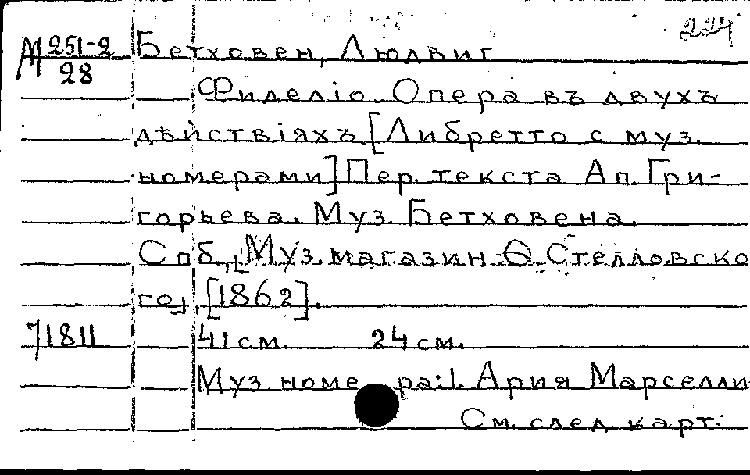 224
М 251-2 Бетховен, Людвиг
28
Фиделіо. Опера въ двухъ
дѣйствіяхъ [Либретто с муз.
номерами] Пер. текста Ап. Гри-
горьева. Муз. Бетховена.
Спб., [Муз. магазин Ѳ. Стелловско
го], [1862].
71811 41 см. 24 см.
Муз номе ра: 1. Ария Марселли
См. след карт.